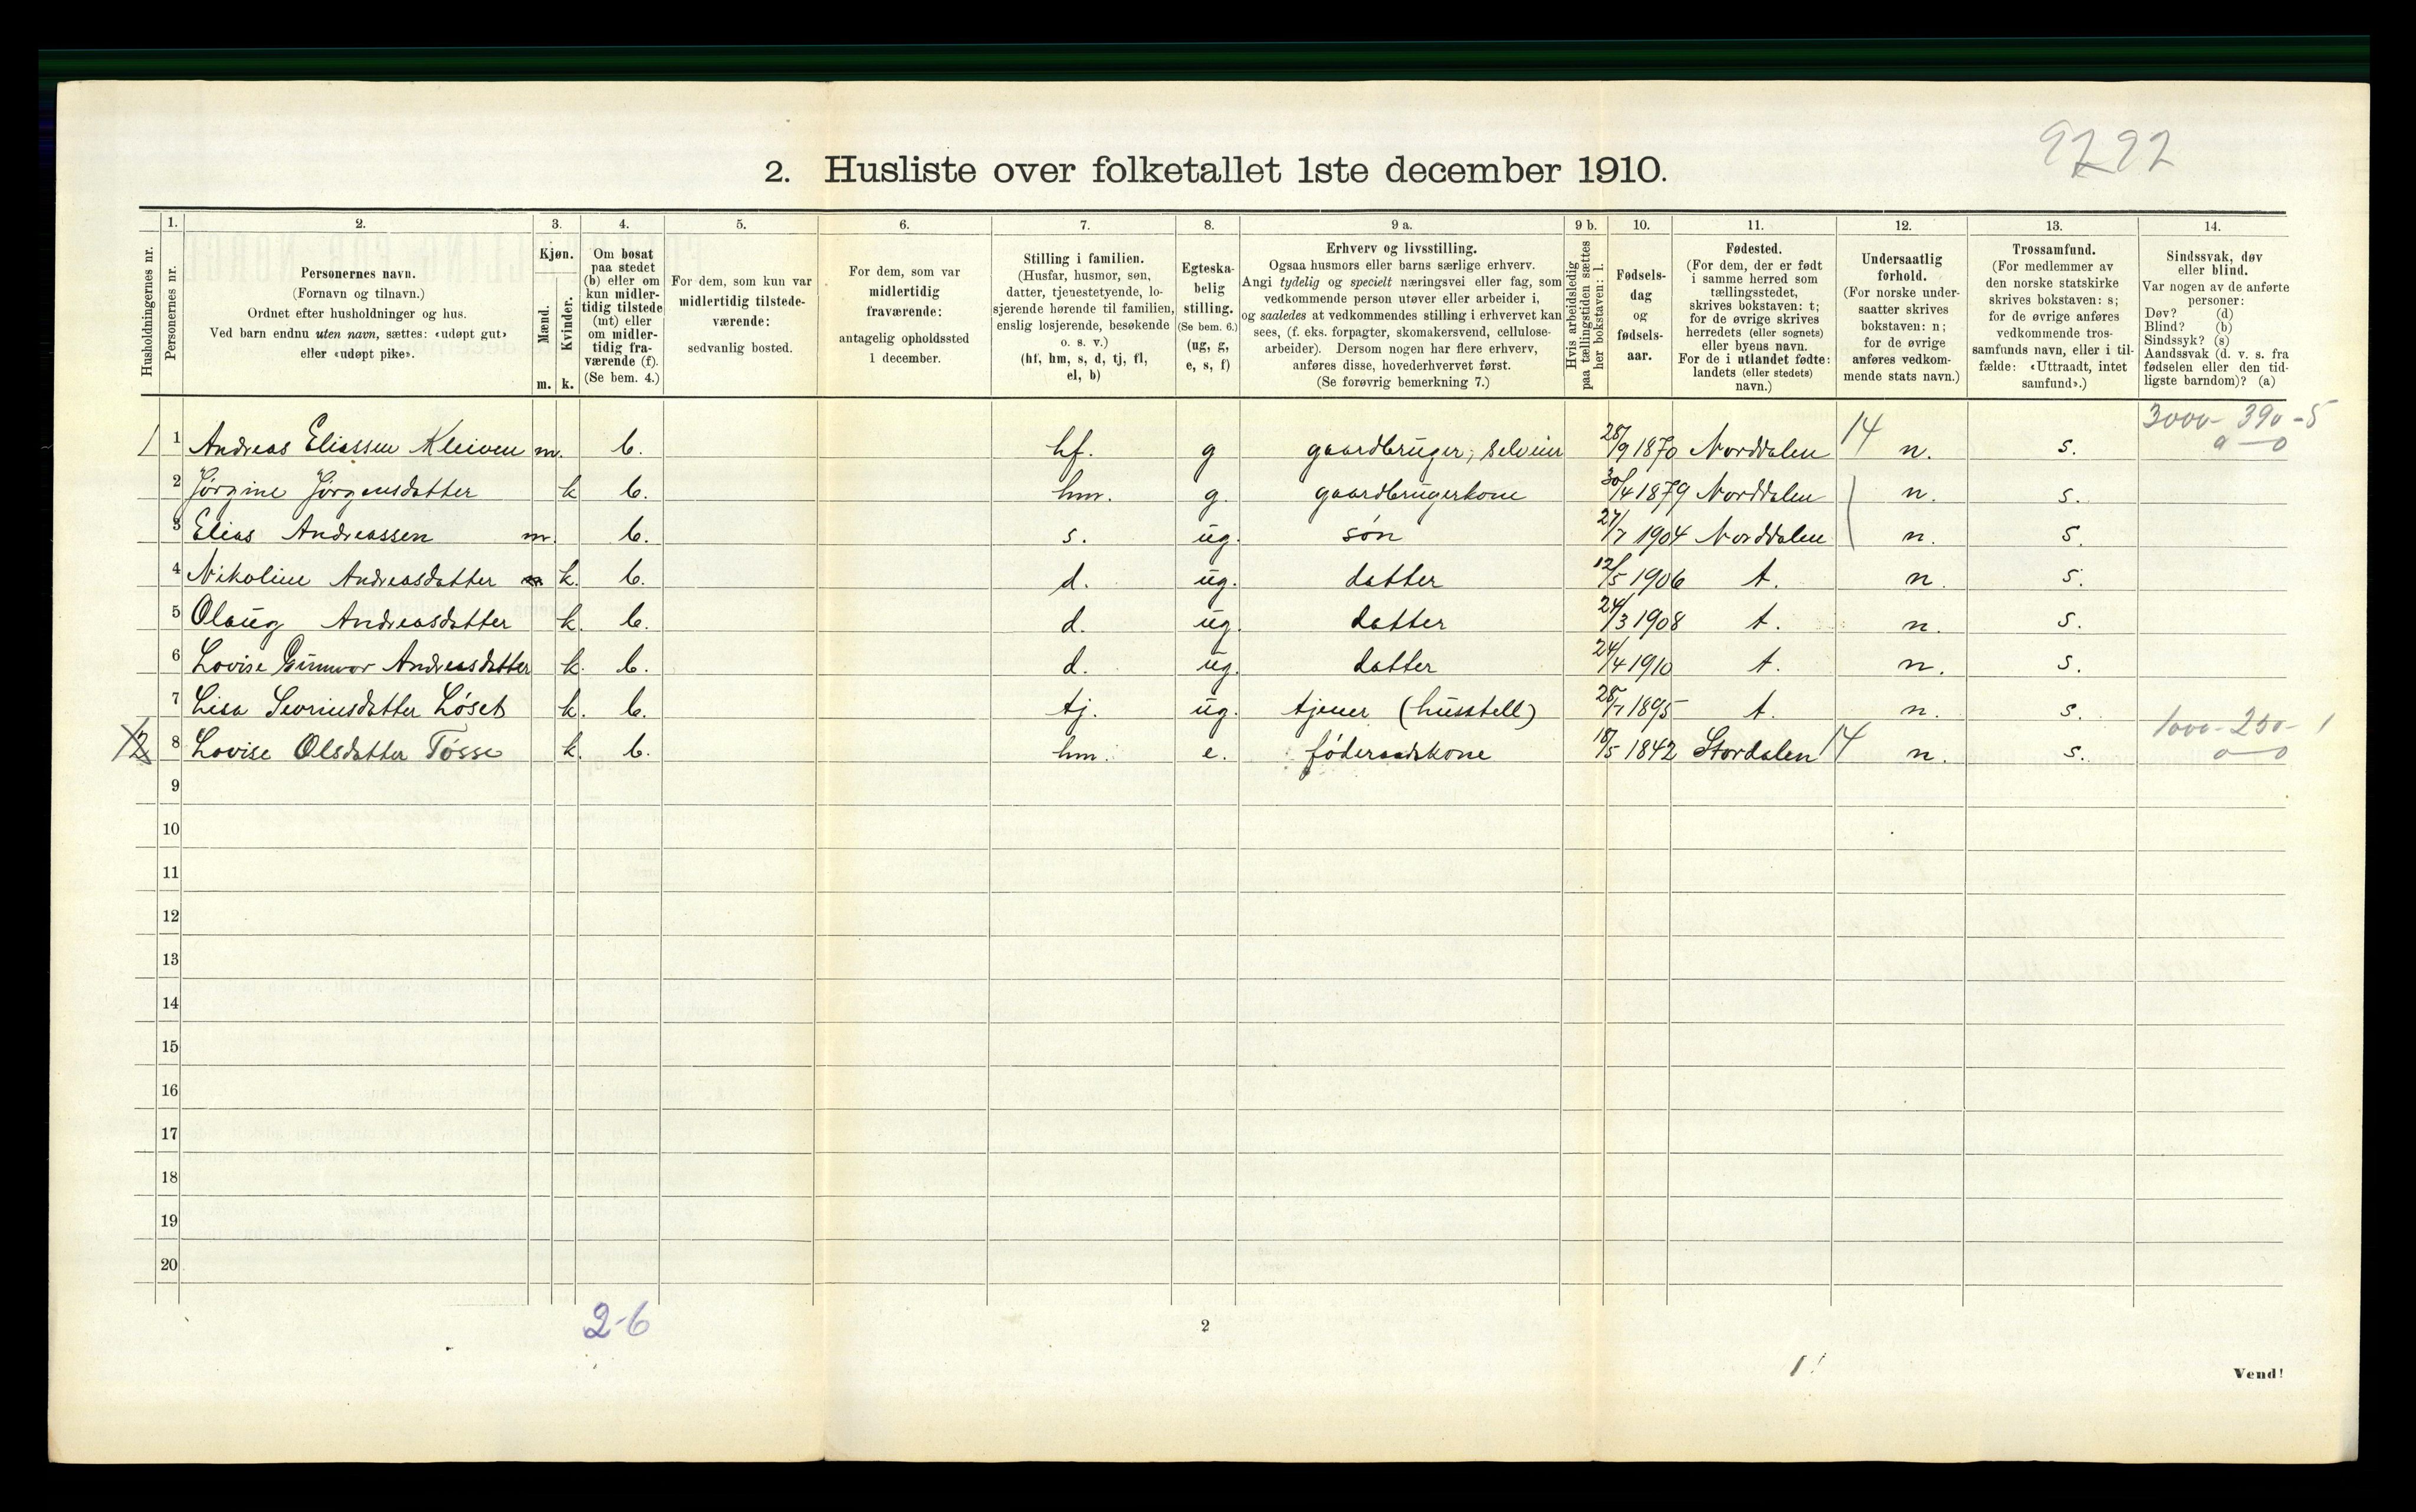 9292
2. Husliste over folketallet 1ste december 1910.
Husholdningernes nr.
1.
Personernes nr.
2.
Personernes navn.
(Fornavn og tilnavn.)
Ordnet efter husholdninger og hus.
Ved barn endnu uten navn, sættes: «udøpt gut»
eller «udøpt pike».
3.
Kjøn.
Mænd.
Kvinder.
m. k.
4.
Om bosat
paa stedet
(b) eller om
kun midler-
tidig tilstede
(mt) eller
om midler-
tidig fra-
værende (f).
(Se bem. 4.)
5.
For dem, som kun var
midlertidig tilstede-
værende:
sedvanlig bosted.
6.
For dem, som var
midlertidig
fraværende:
antagelig opholdssted
1 december.
7.
Stilling i familien.
(Husfar, husmor, søn,
datter, tjenestetyende, lo-
sjerende hørende til familien,
enslig losjerende, besøkende
o. s. v.)
(hf, hm, s, d, tj, fl,
el, b)
8.
Egteska-
belig
stilling.
(Se bem. 6.)
(ug, g,
e, s, f)
9 a.
Erhverv og livsstilling.
Ogsaa husmors eller barns særlige erhverv.
Angi tydelig og specielt næringsvei eller fag, som
vedkommende person utøver eller arbeider i,
og saaledes at vedkommendes stilling i erhvervet kan
sees, (f. eks. forpagter, skomakersvend, cellulose-
arbeider). Dersom nogen har flere erhverv,
anføres disse, hovederhvervet først.
(Se forøvrig bemerkning 7.)
9 b.
Hvis arbeidsledig
paa tællingstiden sættes
her bokstaven: l.
10.
Fødsels-
dag
og
fødsels-
aar.
11.
Fødested.
(For dem, der er født
i samme herred som
tællingsstedet,
skrives bokstaven: t;
for de øvrige skrives
herredets (eller sognets)
eller byens navn.
For de i utlandet fødte:
landets (eller stedets)
navn.)
12.
Undersaatlig
forhold.
(For norske under-
saatter skrives
bokstaven: n;
for de øvrige
anføres vedkom-
mende stats navn.)
13.
Trossamfund.
(For medlemmer av
den norske statskirke
skrives bokstaven: s;
for de øvrige anføres
vedkommende tros-
samfunds navn, eller i til-
fælde: «Uttraadt, intet
samfund».)
14.
Sindssvak, døv
eller blind.
Var nogen av de anførte
personer:
Døv? (d)
Blind? (b)
Sindssyk? (s)
Aandssvak (d. v. s. fra
fødselen eller den tid-
ligste barndom)? (a)
3000- 390-5
1 1 Andreas Eliassen Kleiven m. b. hf. g gaardbruger, selveier 28/9 1870 Norddalen 14 n. s. 0—0
2 Jørgine Jørgensdatter k b. hm. g. gaardbrugerkone 30/4 1879 Norddalen n. s.
3 Elias Andreassen m. b. s. ug. søn 27/7 1904 Norddalen n. s.
4 Nikoline Andreasdatter k. b. d. ug. datter 12/5 1906 t. n. s.
5 Olaug Andreasdatter k. b. d. ug. datter 24/3 1908 t. n. s.
6 Lovise Gunvor Andreasdatter k. b. d. ug. datter 24/4 1910 t. n. s.
7 Lisa Severinsdatter Løset k. b. tj. ug. tjener (husstell) 1895 t. n. s.
1000-250-1
2 8 Lovise Olsdatter Tøsse k. b. hm. e. føderaadskone 18/5 1842 Stordalen 14 n. s. 0—0
9
10
11
12
13
14
15
16
17
18
19
20
2-6
2
1!
Vend!